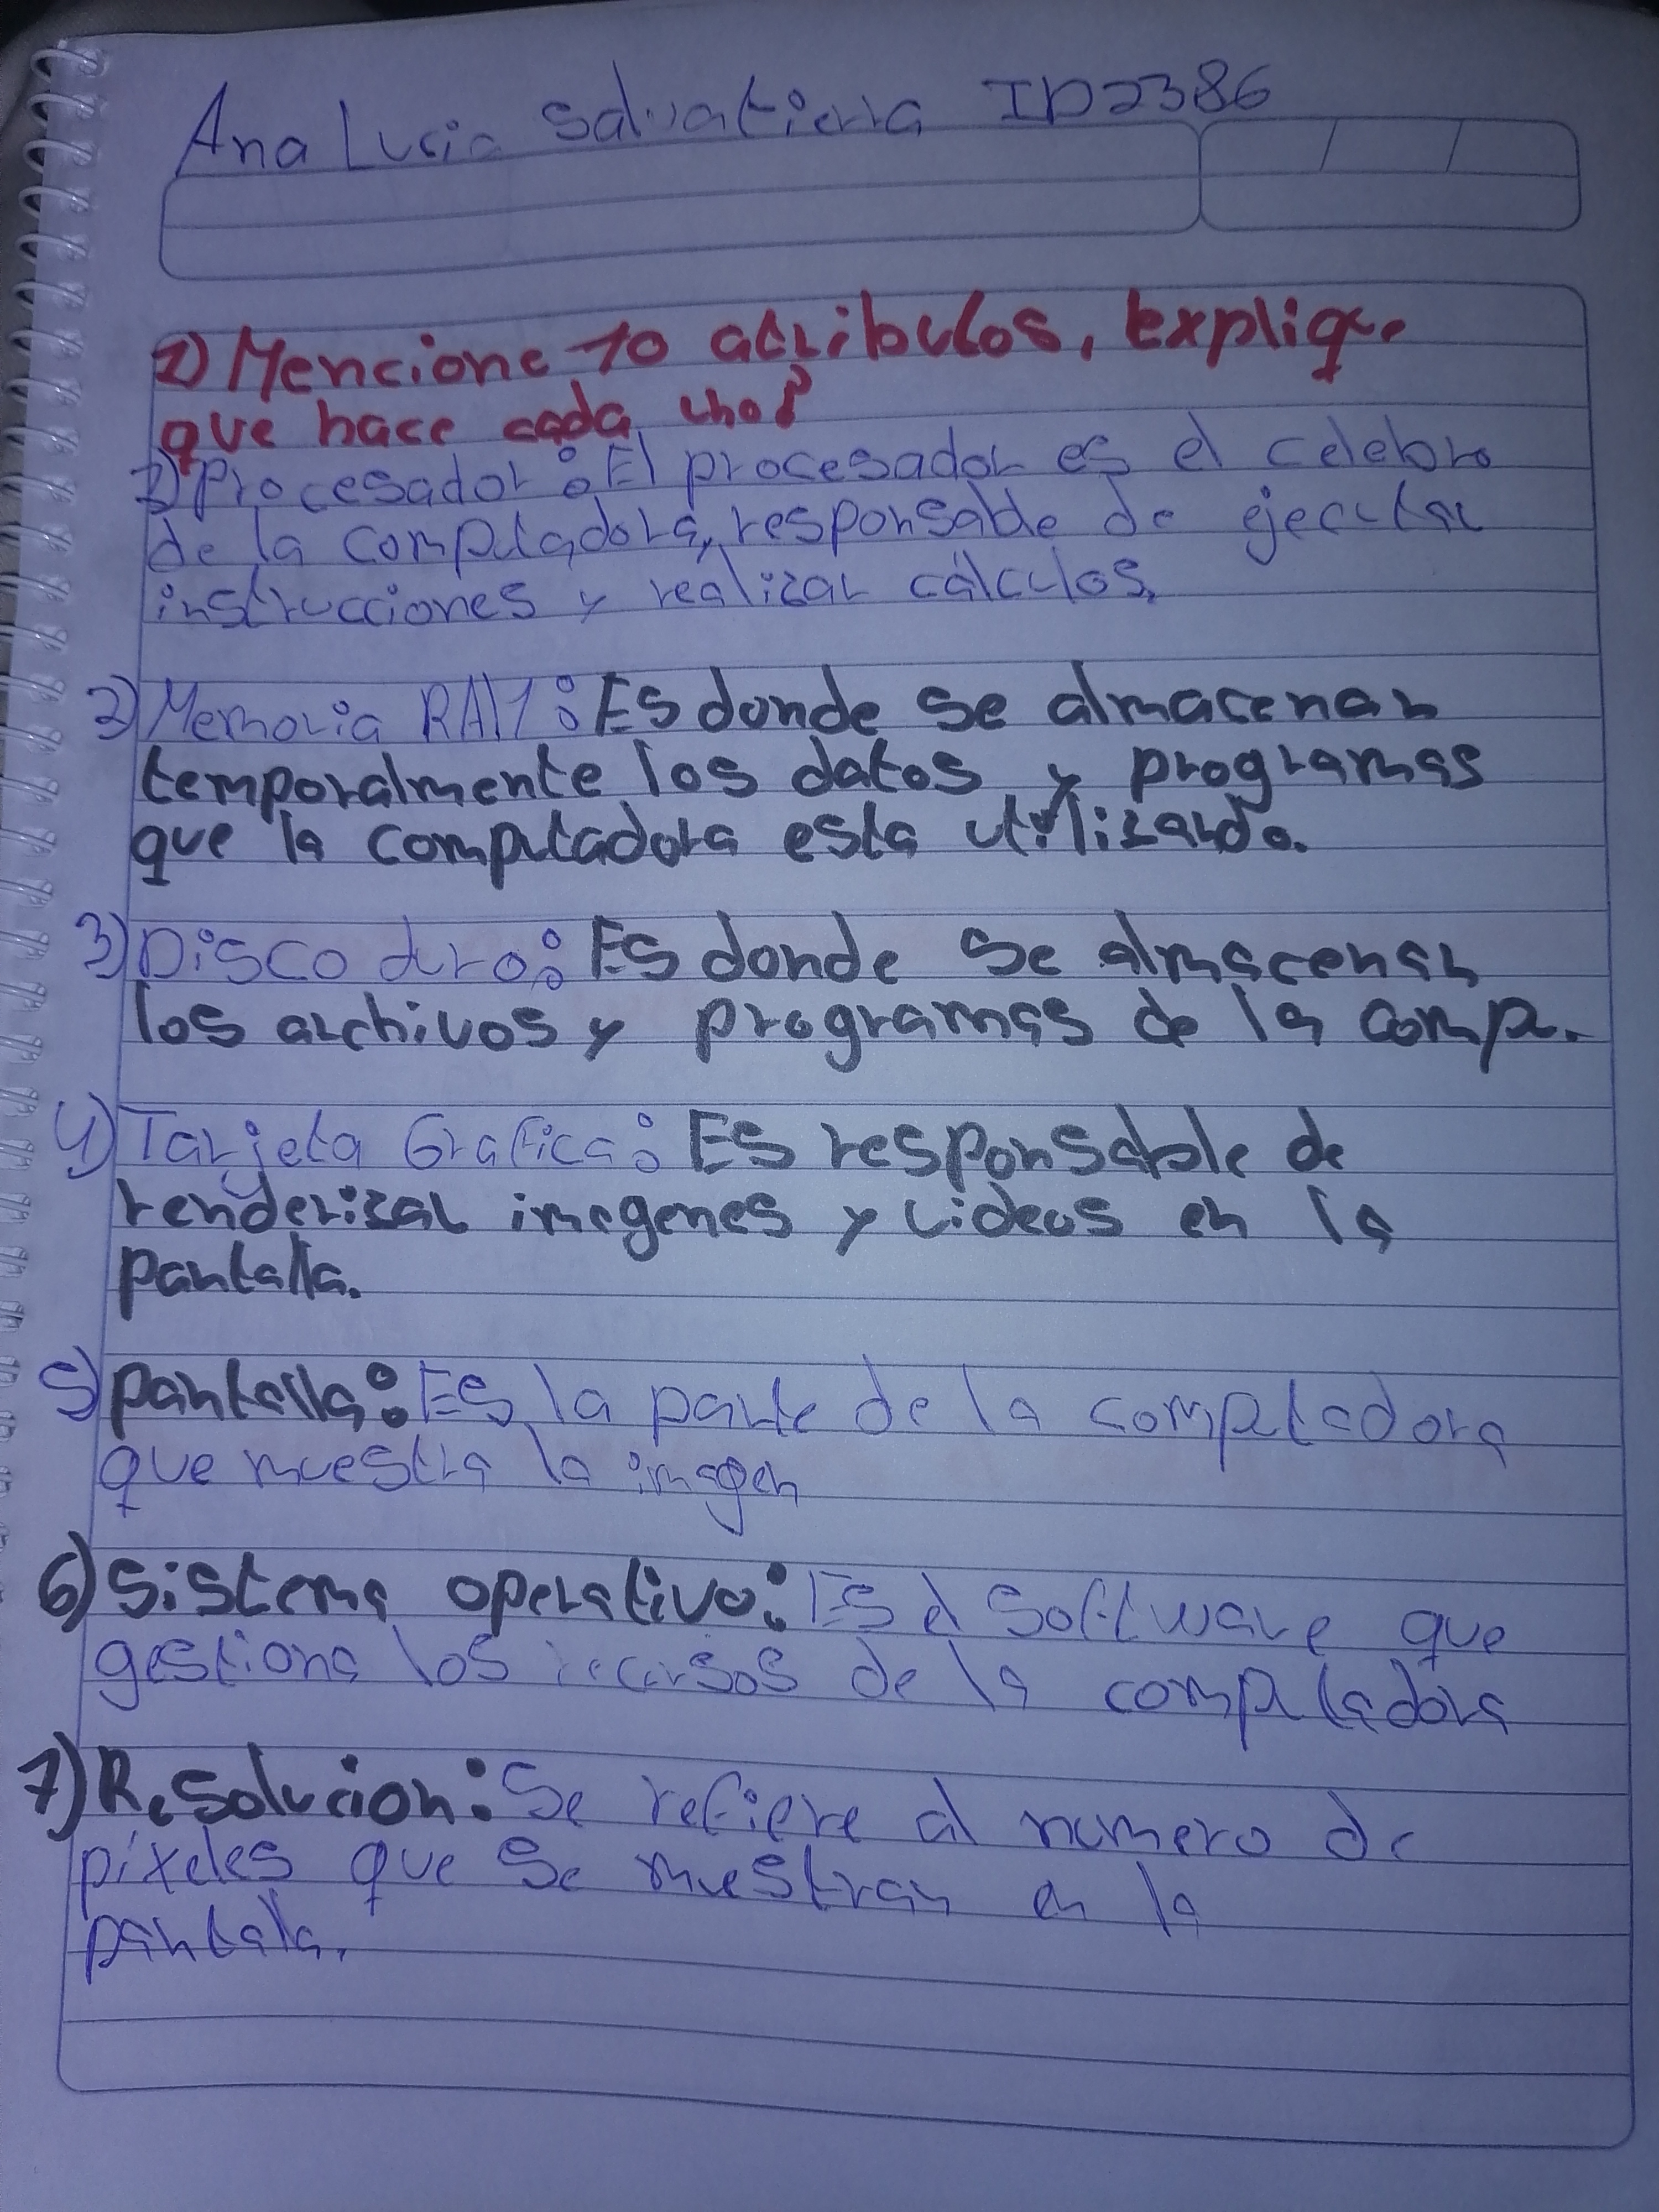 Ana Lucia Salvatierra ID2386
1) Mencione 10 atributos, Explique
que hace cada uno?
1) Procesador: El procesador es el celebro
de la computadora, responsable de ejecutar
instrucciones y realizar cálculos.
2) Memoria RAM: Es donde se almacenan
temporalmente los datos y programas
que la computadora esta utilizando.
3) Disco duro: Es donde se almacenan
los archivos y programas de la comp.
4) Tarjeta Grafica: Es responsable de
renderizar imagenes y videos en la
pantalla.
5) pantalla: Es la parte de la computadora
que muestra la imagen
6) Sistema operativo: Es el software que
gestiona los recursos de la computadora
7) Resolucion: Se refiere al numero de
píxeles que se muestran en la
pantalla.